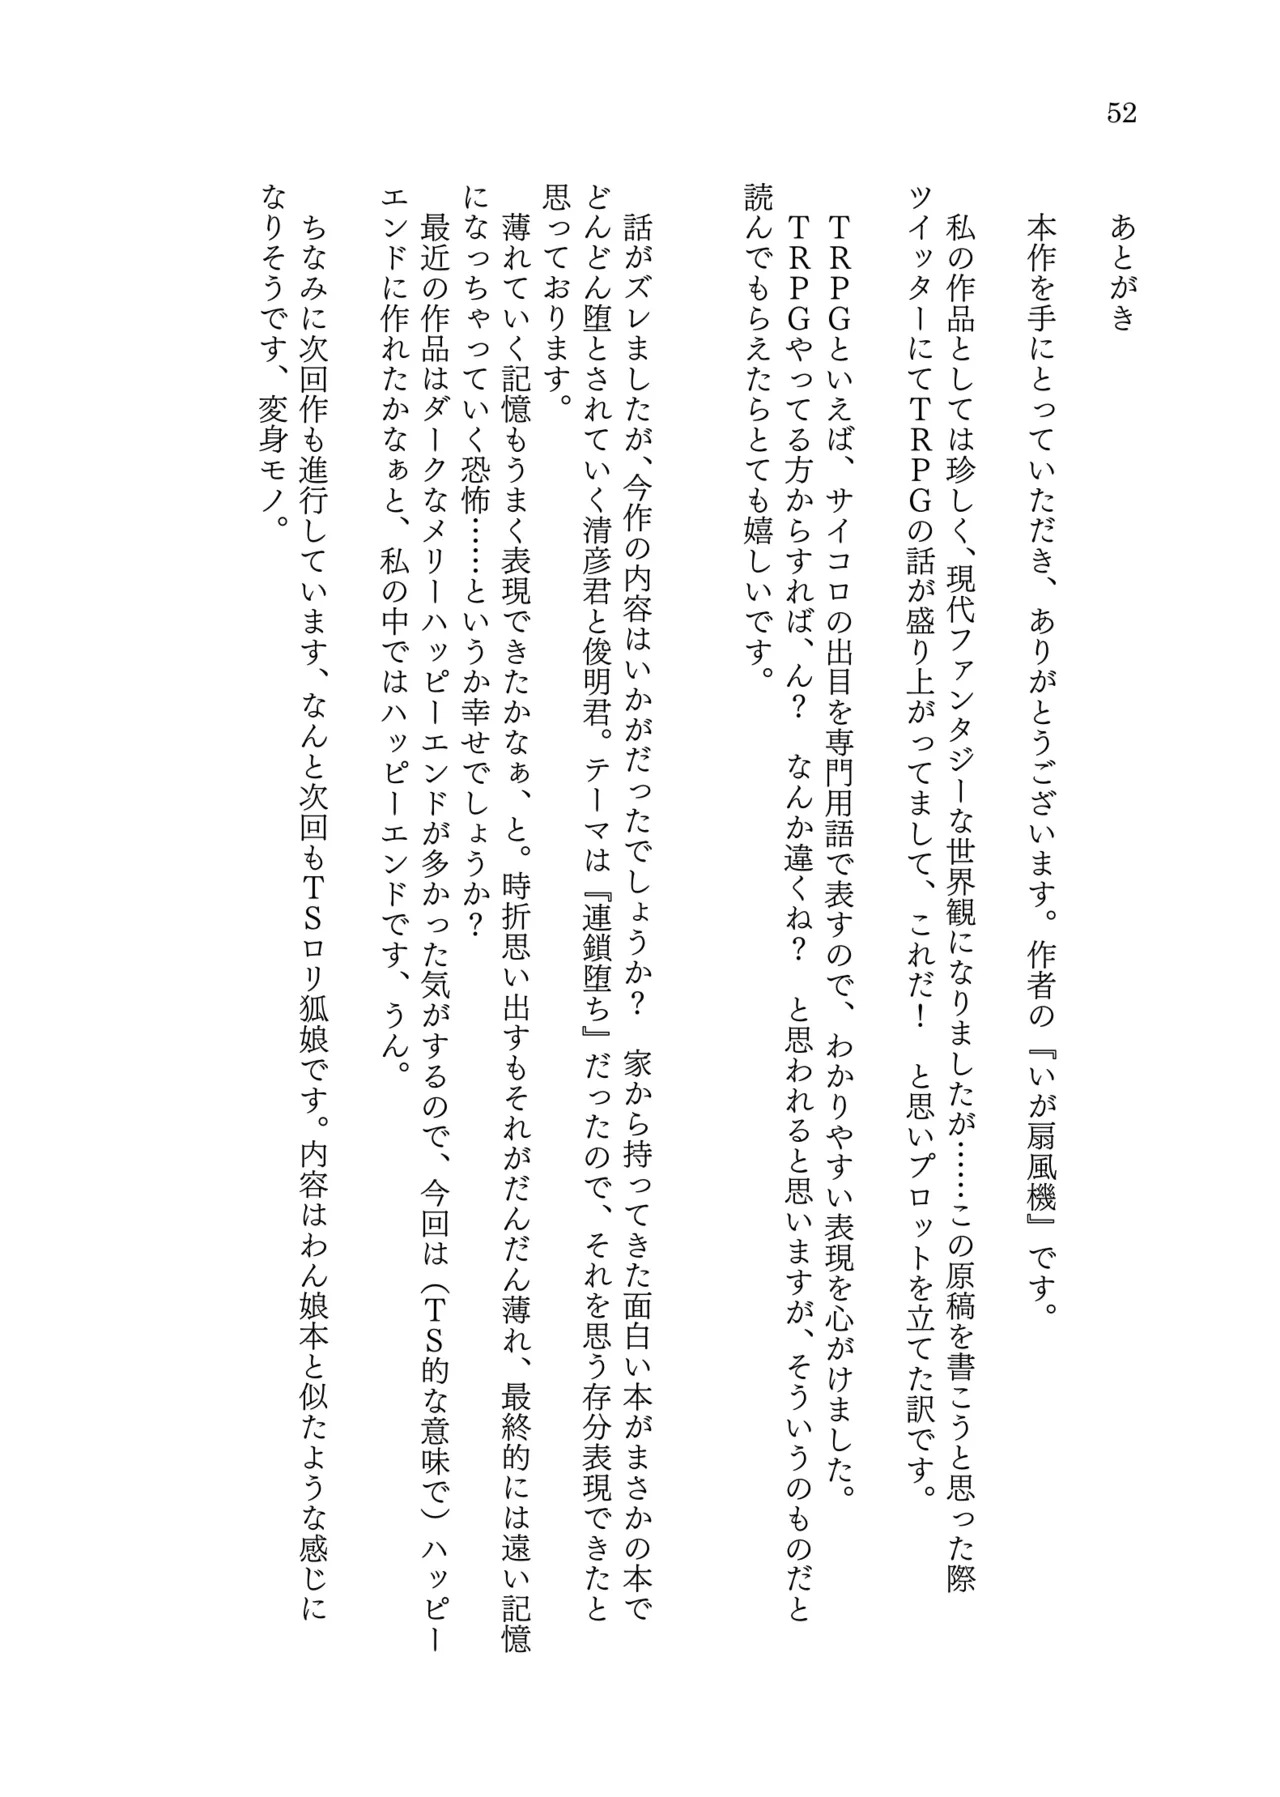 52
あとがき
本作を手にとっていただき、ありがとうございます。作者の『いが扇風機』です。
私の作品としては珍しく、現代ファンタジーな世界観になりましたが……この原稿を書こうと思った際
ツイッターにてＴＲＰＧの話が盛り上がってまして、これだ！　と思いプロットを立てた訳です。
ＴＲＰＧといえば、サイコロの出目を専門用語で表すので、わかりやすい表現を心がけました。
ＴＲＰＧやってる方からすれば、ん？　なんか違くね？　と思われると思いますが、そういうのものだと
読んでもらえたらとても嬉しいです。
話がズレましたが、今作の内容はいかがだったでしょうか？　家から持ってきた面白い本がまさかの本で
どんどん堕とされていく清彦君と俊明君。テーマは『連鎖堕ち』だったので、それを思う存分表現できたと
思っております。
薄れていく記憶もうまく表現できたかなぁ、と。時折思い出すもそれがだんだん薄れ、最終的には遠い記憶
になっちゃっていく恐怖……というか幸せでしょうか？
最近の作品はダークなメリーハッピーエンドが多かった気がするので、今回は（ＴＳ的な意味で）ハッピー
エンドに作れたかなぁと、私の中ではハッピーエンドです、うん。
ちなみに次回作も進行しています、なんと次回もＴＳロリ狐娘です。内容はわん娘本と似たような感じに
なりそうです、変身モノ。